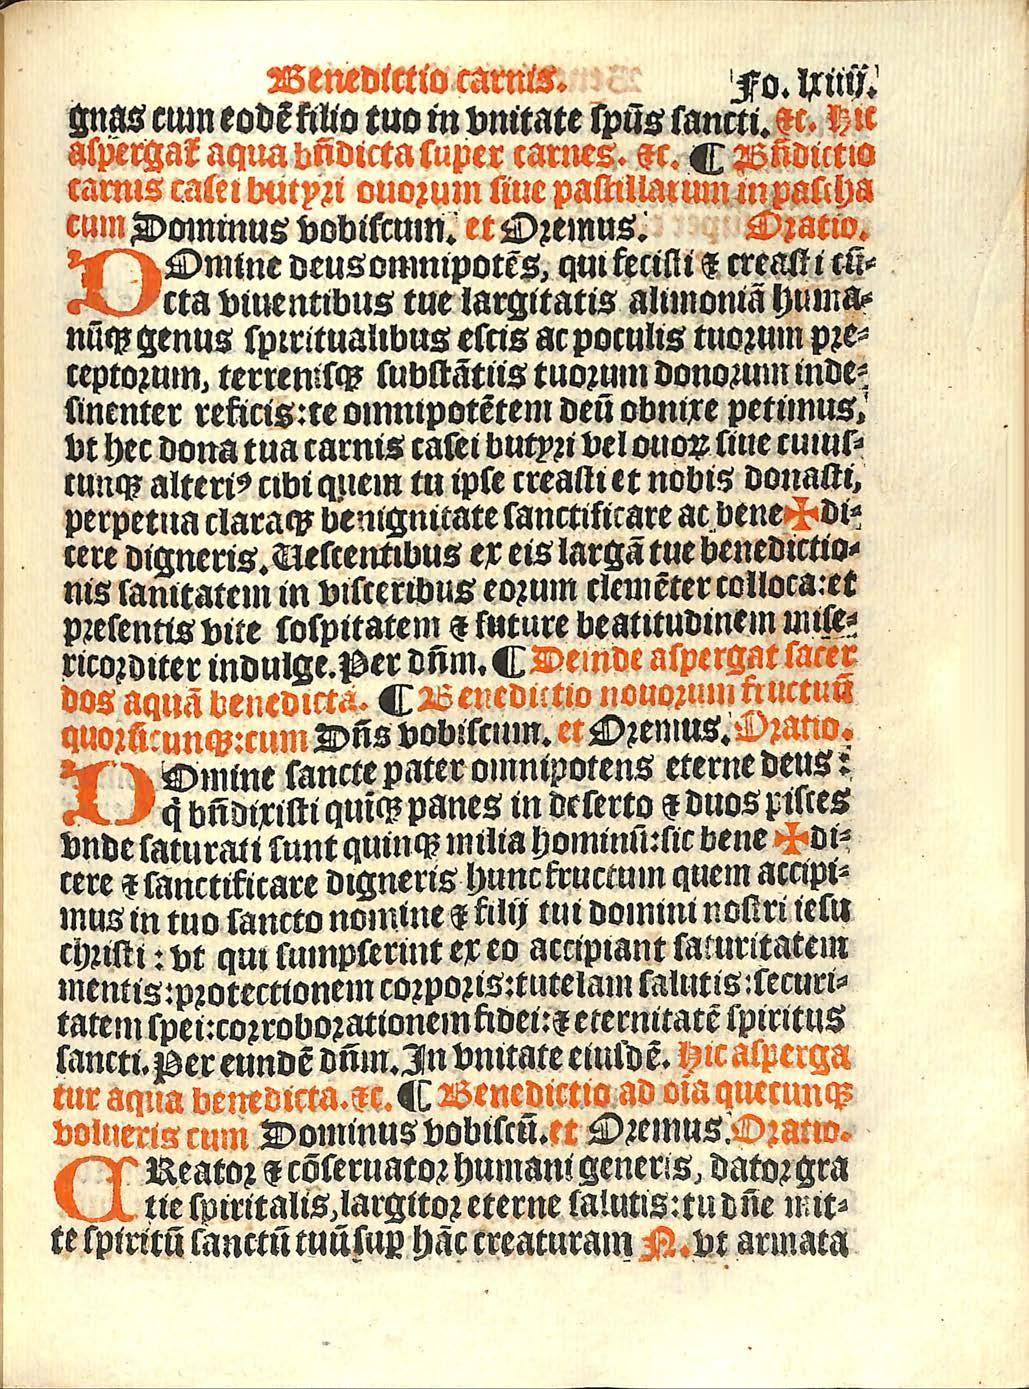 Benedictio carnis. Fo. lxiiij.
gnas cum eodē filio tuo in vnitate spūs sancti. ⁊c. Hic
aspergat̄ aqua bn̄dicta super carnes. ⁊c. ¶ Bn̄dictio
carnis casei butyri ouorum siue pastillarum in pascha
cum Dominus vobiscum. et Oremus. Oratio.
DOmine deus omnipotēs, qui fecisti ⁊ creasti cū-
cta viuentibus tue largitatis alimoniā huma-
nūqꝫ genus spiritualibus escis ac poculis tuorum pre-
ceptorum, terrenisqꝫ substātiis tuorum donorum inde-
sinenter reficis: te omnipotētem deū obnixe petimus,
vt hec dona tua carnis casei butyri vel ouoꝝ siue cuius-
cunqꝫ alteriꝰ cibi quem tu ipse creasti et nobis donasti,
perpetua claraqꝫ benignitate sanctificare ac bene✠di-
cere digneris. Uescentibus ex eis largā tue benedictio-
nis sanitatem in visceribus eorum clemēter colloca: et
presentis vite sospitatem ⁊ future beatitudinem mise-
ricorditer indulge. Per dn̄m. ¶ Deinde aspergat sacer
dos aquā benedicta. ¶ Benedictio nouorum fructuū
quorūcunqꝫ: cum Dn̄s vobiscum. et Oremus. Oratio.
DOmine sancte pater omnipotens eterne deus:
q̇ bn̄dixisti quīqꝫ panes in deserto ⁊ duos pisces
vnde saturati sunt quinqꝫ milia hominū: sic bene ✠di-
cere ⁊ sanctificare digneris hunc fructum quem accipi-
mus in tuo sancto nomine ⁊ filij tui domini nostri iesu
christi: vt qui sumpserint ex eo accipiant saturitatem
mentis: protectionem corporis: tutelam salutis: securi-
tatem spei: corroborationem fidei: ⁊ eternitatē spiritus
sancti. Per eundē dn̄m. In vnitate eiusdē. Hic asperga
tur aqua benedicta. ⁊c. ¶ Benedictio ad oīa quecunqꝫ
volueris cum Dominus vobiscū. et Oremus. Oratio.
CReator ⁊ cōseruator humani generis, dator gra
tie spiritalis, largitor eterne salutis: tu dn̄e mit-
te spiritū sanctū tuū suꝑ hāc creaturam N. vt armata